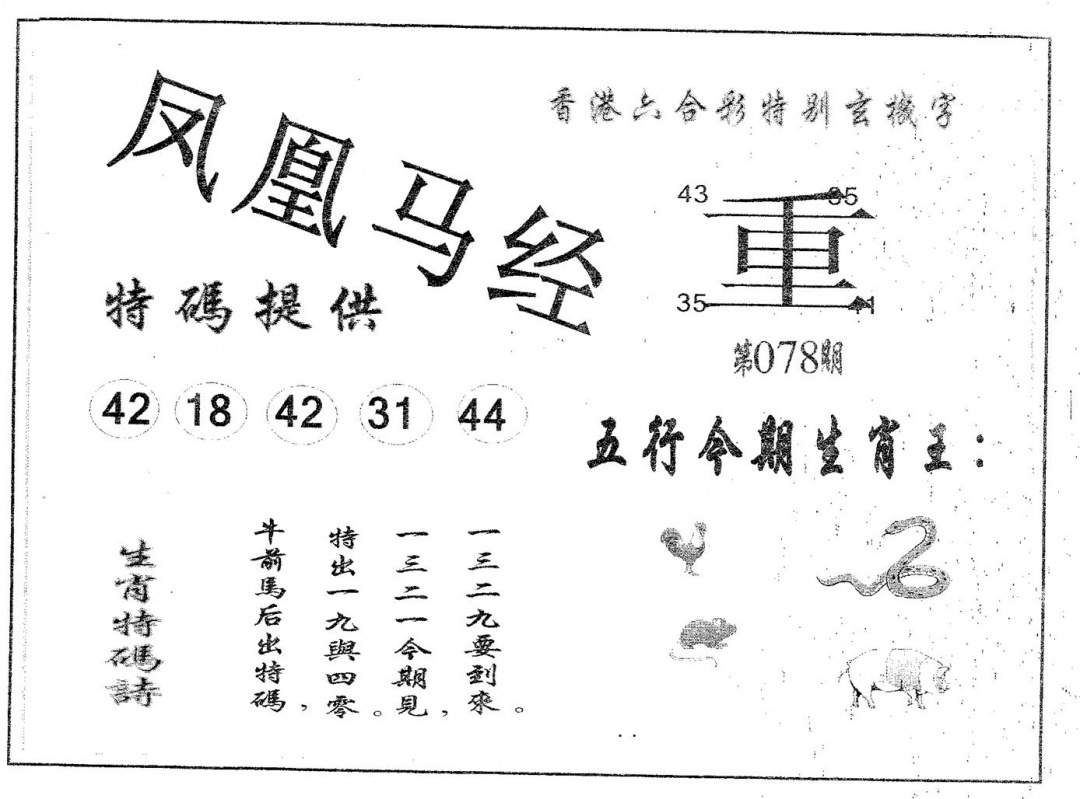 凤凰马经
香港六合彩特别玄機字
43
35
重
35
41
第078期
特碼提供
42 18 42 31 44
五行今期生肖王：
生肖特碼詩
牛前馬后出特碼，
特出一九與四零。
一三二一今期見，
一三二九要到來。